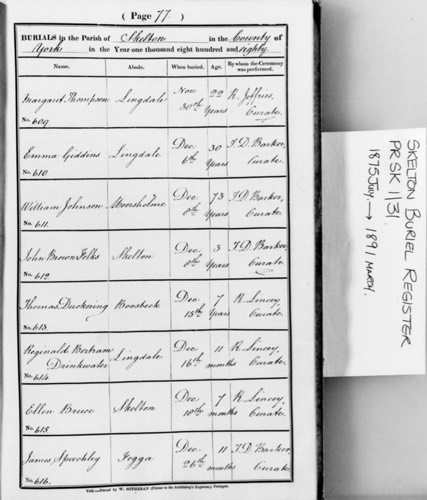 ( Page 77. )
BURIALS in the Parish of Skelton in the County of
York in the Year one thousand eight hundred and eighty.
Name. Abode. When buried. Age. By whom the Ceremony was performed.
Margaret Thompson Lingdale Nov 30th 22 Years R. Jeffries, Curate.
No. 609.
Emma Giddins Lingdale Dec 6th 30 Years T. D. Barker, Curate.
No. 610.
William Johnson Moorsholme Dec. 8th 73 Years T. D. Barker, Curate.
No. 611.
John Brown Felks Skelton Dec. 8th 3 Years T. D. Barker, Curate.
No. 612.
Thomas Duckering Boosbeck Dec 15th 7 Years R. Lincey, Curate.
No. 613.
Reginald Bertram Drinkwater Lingdale Dec 16th 11 months R. Lincey, Curate.
No. 614
Ellen Bruce Skelton Dec. 18th 7 months R. Lincey, Curate.
No. 615.
James Speechley Fogga Dec. 26th 11 months T. D. Barker, Curate
No. 616.
York:—Printed by W. SOTHERAN (Printer to the Archbishop's Registry), Pavement.
SKELTON BURIEL REGISTER
PR SK 1/31
1875 July. → 1891 MARCH.